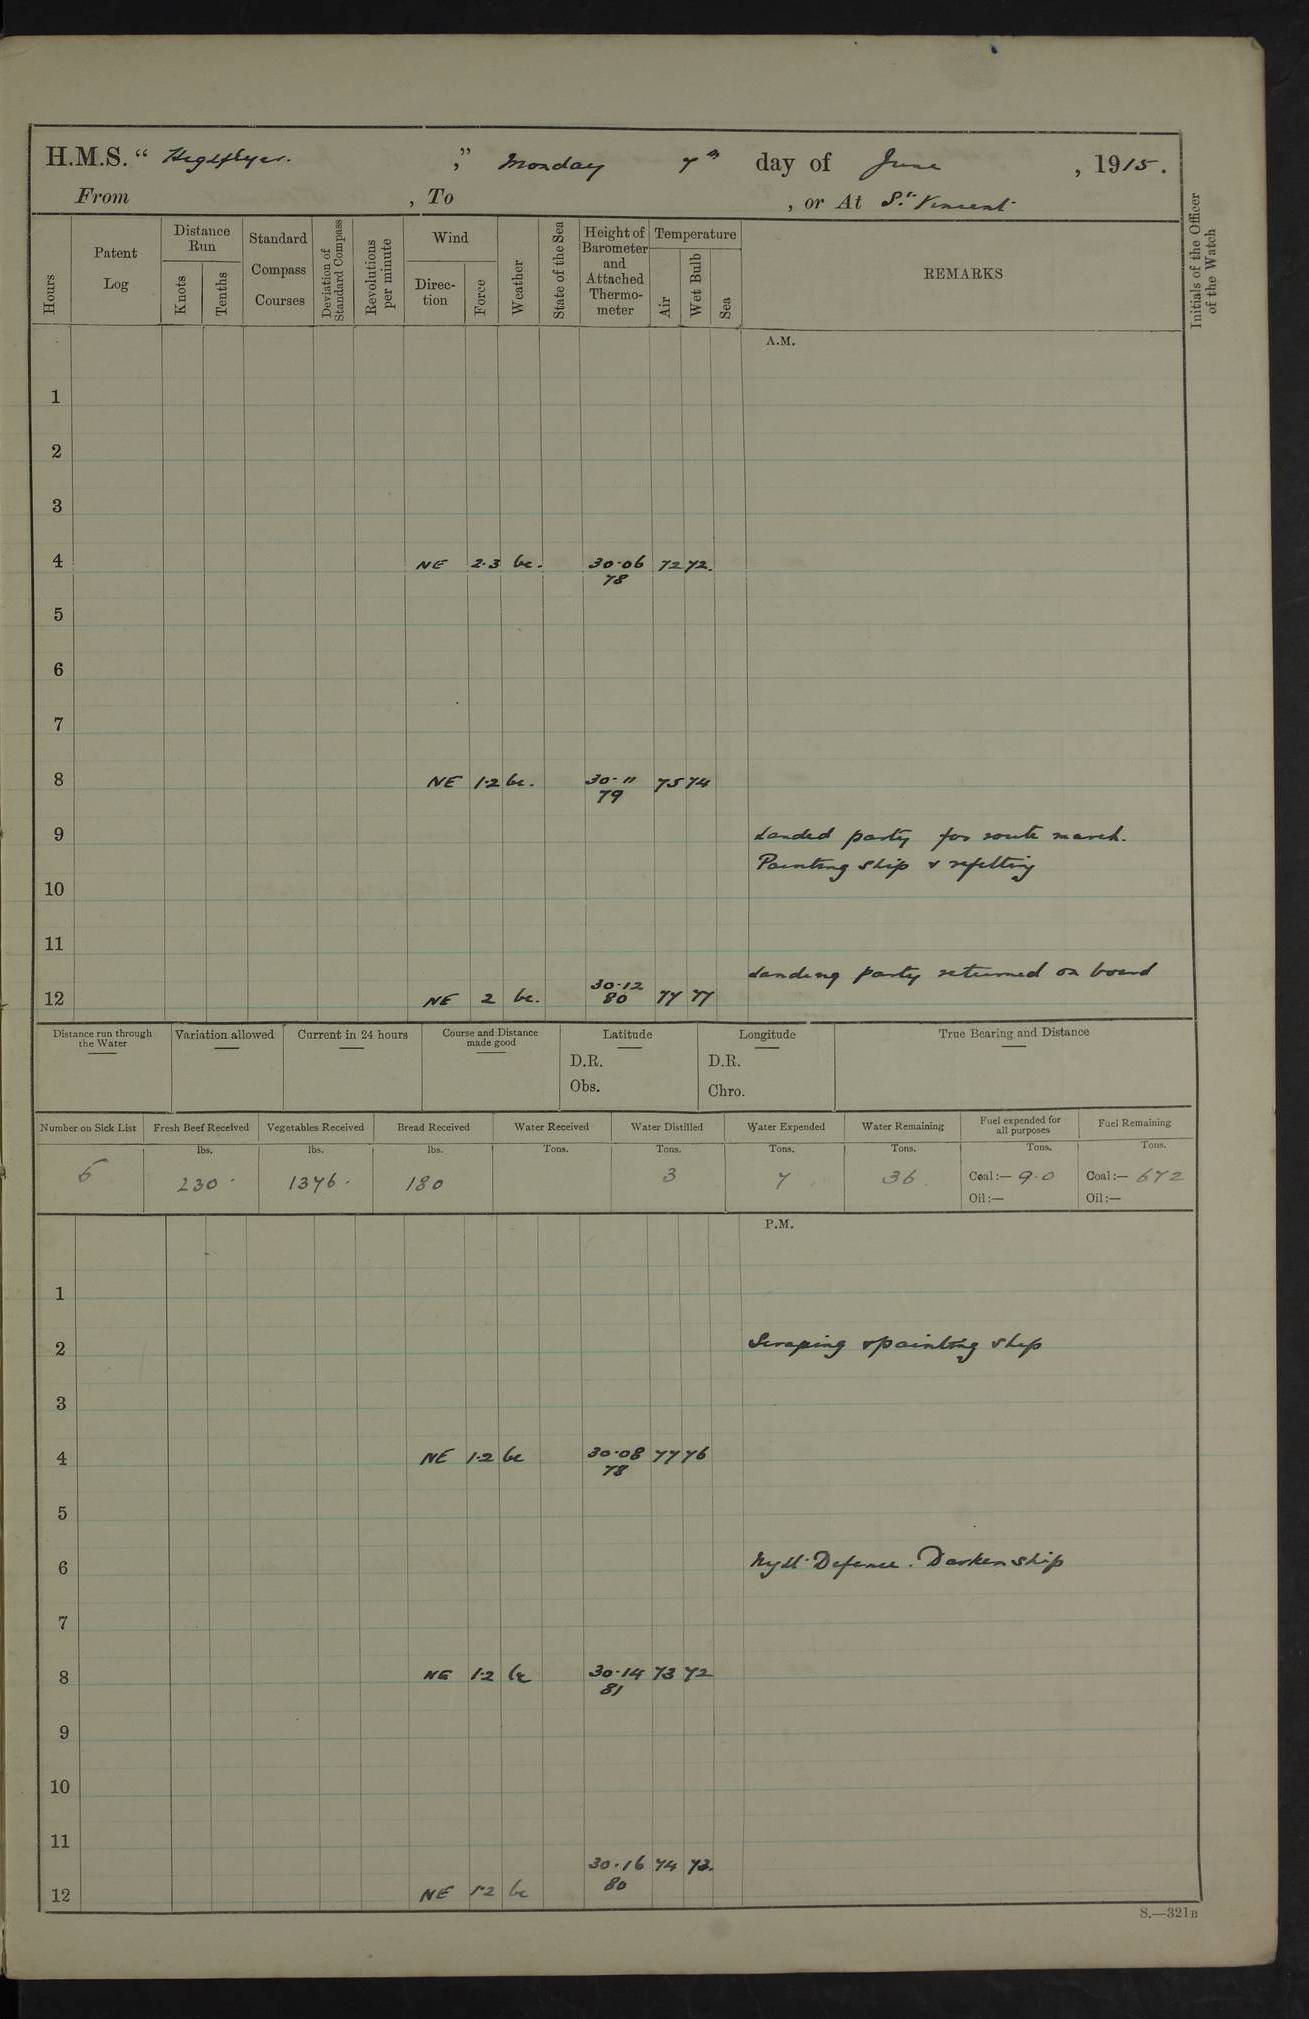 H.M.S. “ Highflyer. ,” Monday 7th day of June , 1915.
From , To , or At St. Vincent
Hours
Patent Log
Distance Run
Knots
Tenths
Standard Compass Courses
Deviation of Standard Compass
Revolutions per minute
Wind
Direc-tion
Force
Weather
State of the Sea
Height of Barometer and Attached Thermo-meter
Temperature
Air
Wet Bulb
Sea
REMARKS
Initials of the Officer of the Watch
A.M.
1
2
3
4 NE 2.3 bc. 30.06 72 72.
78
5
6
7
8 NE 1.2 bc. 30.11 75 74
79
9 Landed party for route march.
Painting ship & refitting
10
11
Landing party returned on board
30.12
12 NE 2 bc. 80 77 77
Distance run through the Water
Variation allowed
Current in 24 hours
Course and Distance made good
Latitude
D.R.
Obs.
Longitude
D.R.
Chro.
True Bearing and Distance
Number on Sick List Fresh Beef Received Vegetables Received Bread Received Water Received Water Distilled Water Expended Water Remaining Fuel expended for all purposes Fuel Remaining
lbs. lbs. lbs. Tons. Tons. Tons. Tons. Tons. Tons.
6 230. 1376. 180 3 7 36. Coal:— 9.0 Coal:— 672
Oil:— Oil:—
P.M.
1
2 Scraping & painting ship
3
4 NE 1.2 bc 30.08 77 76
78
5
6 Night Defence. Darken ship
7
8 NE 1.2 bc 30.14 73 72
81
9
10
11
30.16 74 73.
12 NE 1.2 bc 80
S.—321B